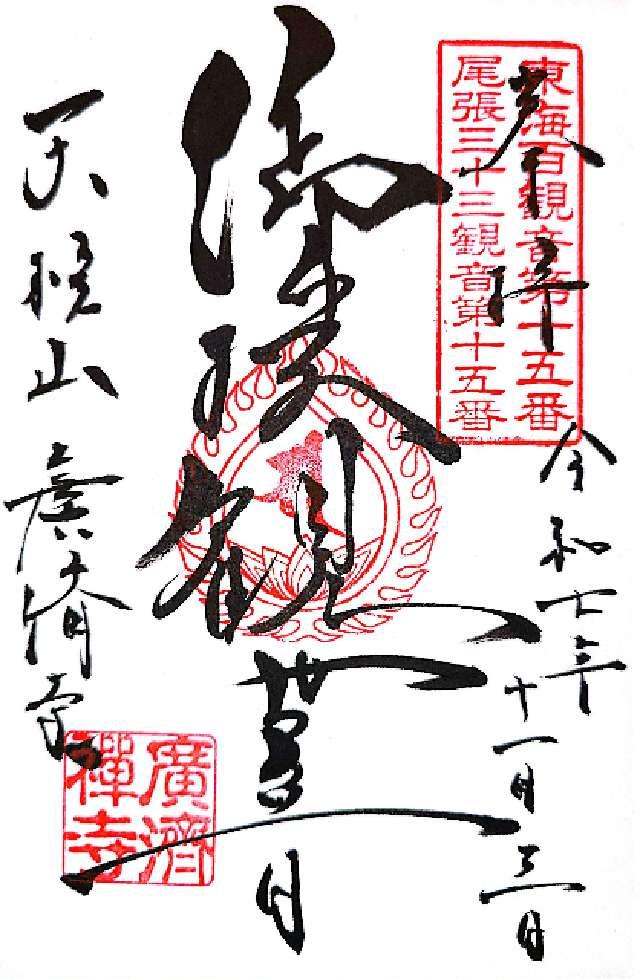 奉拝
東海百観音第十五番
尾張三十三観音第十五番
令和七年十一月三日
観世音
天山廣済寺
廣濟
禪寺